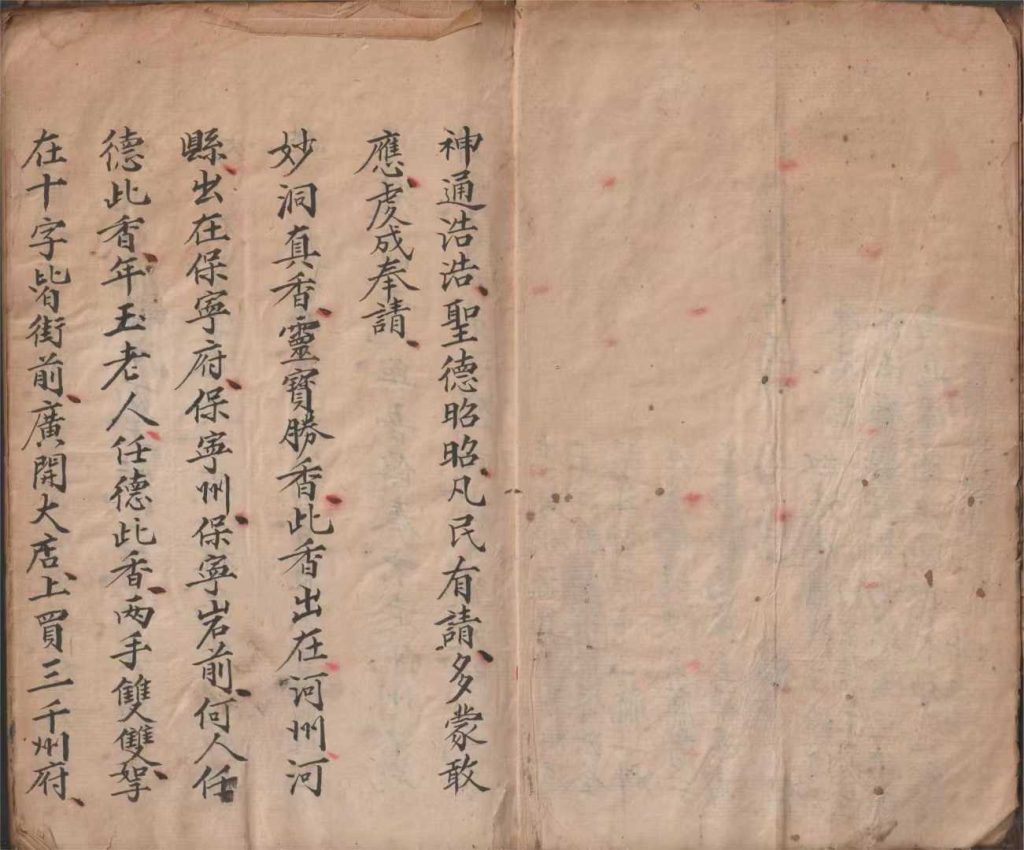 神通浩浩、聖德昭昭、凡民有請、多蒙敢
應、虔成奉請、
妙洞真香、靈寶勝香、此香出在河州河
縣、出在保寧府、保寧州、保寧岩前、何人任
德此香、年王老人、任德此香、兩手雙雙拏、
在十字皆街前、廣開大店、上買三千州府、